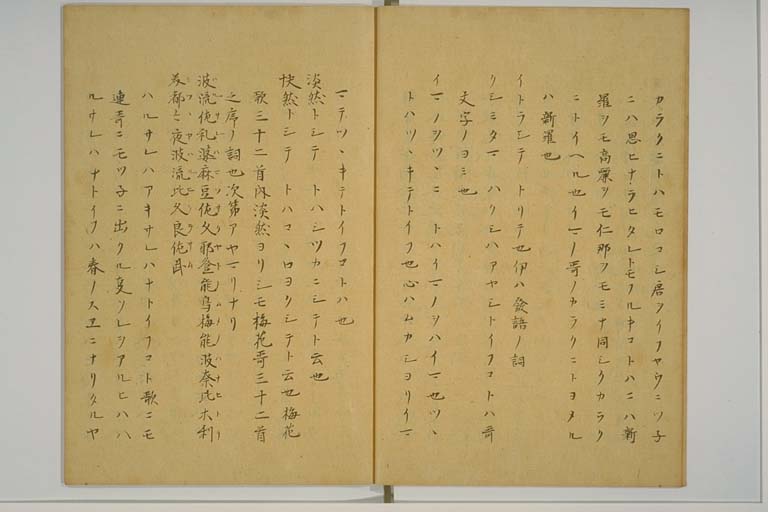 カラクニトハモロコシ唐ヲイフヤウニツ子
ニハ思ヒナラヒタレトモフルキコトハニハ新
羅ヲモ高麗ヲモ仁那ヲモミナ同シクカラク
ニトイヘル也イマノ哥ノカラクニトヨメル
ハ新羅也
イトラシテ トリテ也伊ハ發語ノ詞
クシミタマ ハクシハアヤシトイフコトハ哥
文字ノヨミ也
イマノヲツヽニ トハイマノヲハイマ也ツヽ
トハツヽキテトイフ也心ハムカシヨリイマ
マテツヽキテトイフコトハ也
淡然トシテ トハシツカニシテト云也
快然トシテ トハコヽロヨクシテト云也梅花
歌三十二首内淡然ヨリシモ梅花哥三十二首
之席ノ詞也次第アヤマリナリ
波流佐礼婆麻豆佐久耶登能烏梅能波奈比木利
美都々夜波流比久良佐武
ハルサレハアキサレハナトイフコト歌ニモ
連哥ニモツ子ニ出クル事ソレシアルヒハハ
ルサレハナトイフハ春ノスヱニナリタルヤ